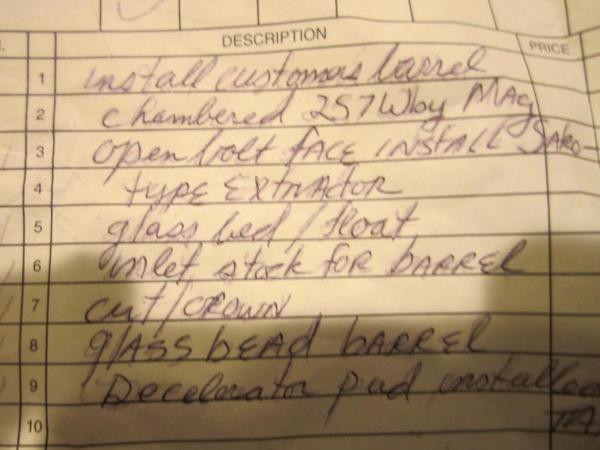 DESCRIPTION PRICE
1 install customers barrel
2 chambered 257 Wby MAg
3 open bolt fACE INSTALL SAKO-
4 TYPE EXTRACTOR
5 glass bed / float
6 inlet stock FOR bARREL
7 cut/CROWN
8 glASS bEAd bARREL
9 Decelerator pad installed
10